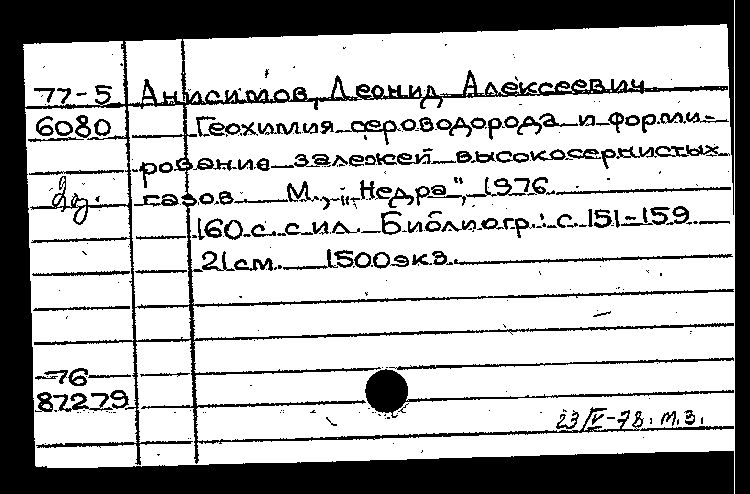 77-5 Анисимов, Леонид Алексеевич
6080 Геохимия сероводорода и форми-
рование залежей высокосернистых
газов. М., „Недра", 1976.
160 с. с ил. Библиогр.: с. 151-159
21 см. 1500 экз.
-76
87279
23/V-78. М.З.